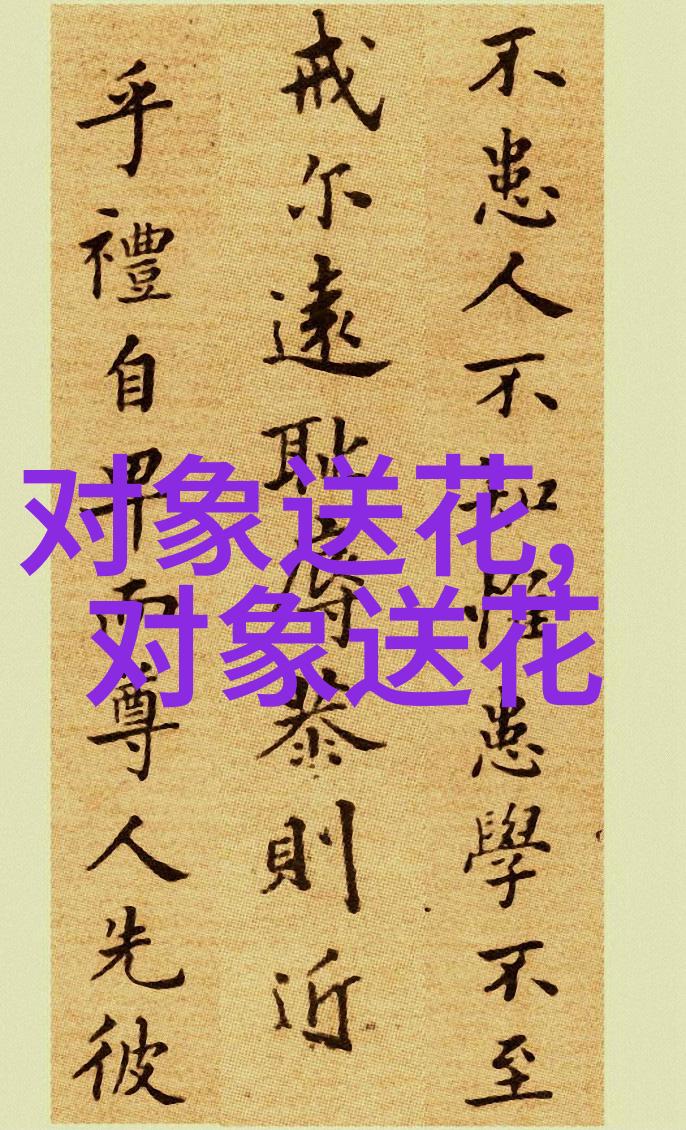 不患人不知惟患學不至
戒尔遠恥辱恭則近
乎禮自卑而尊人先彼
对象送花,
对象送花